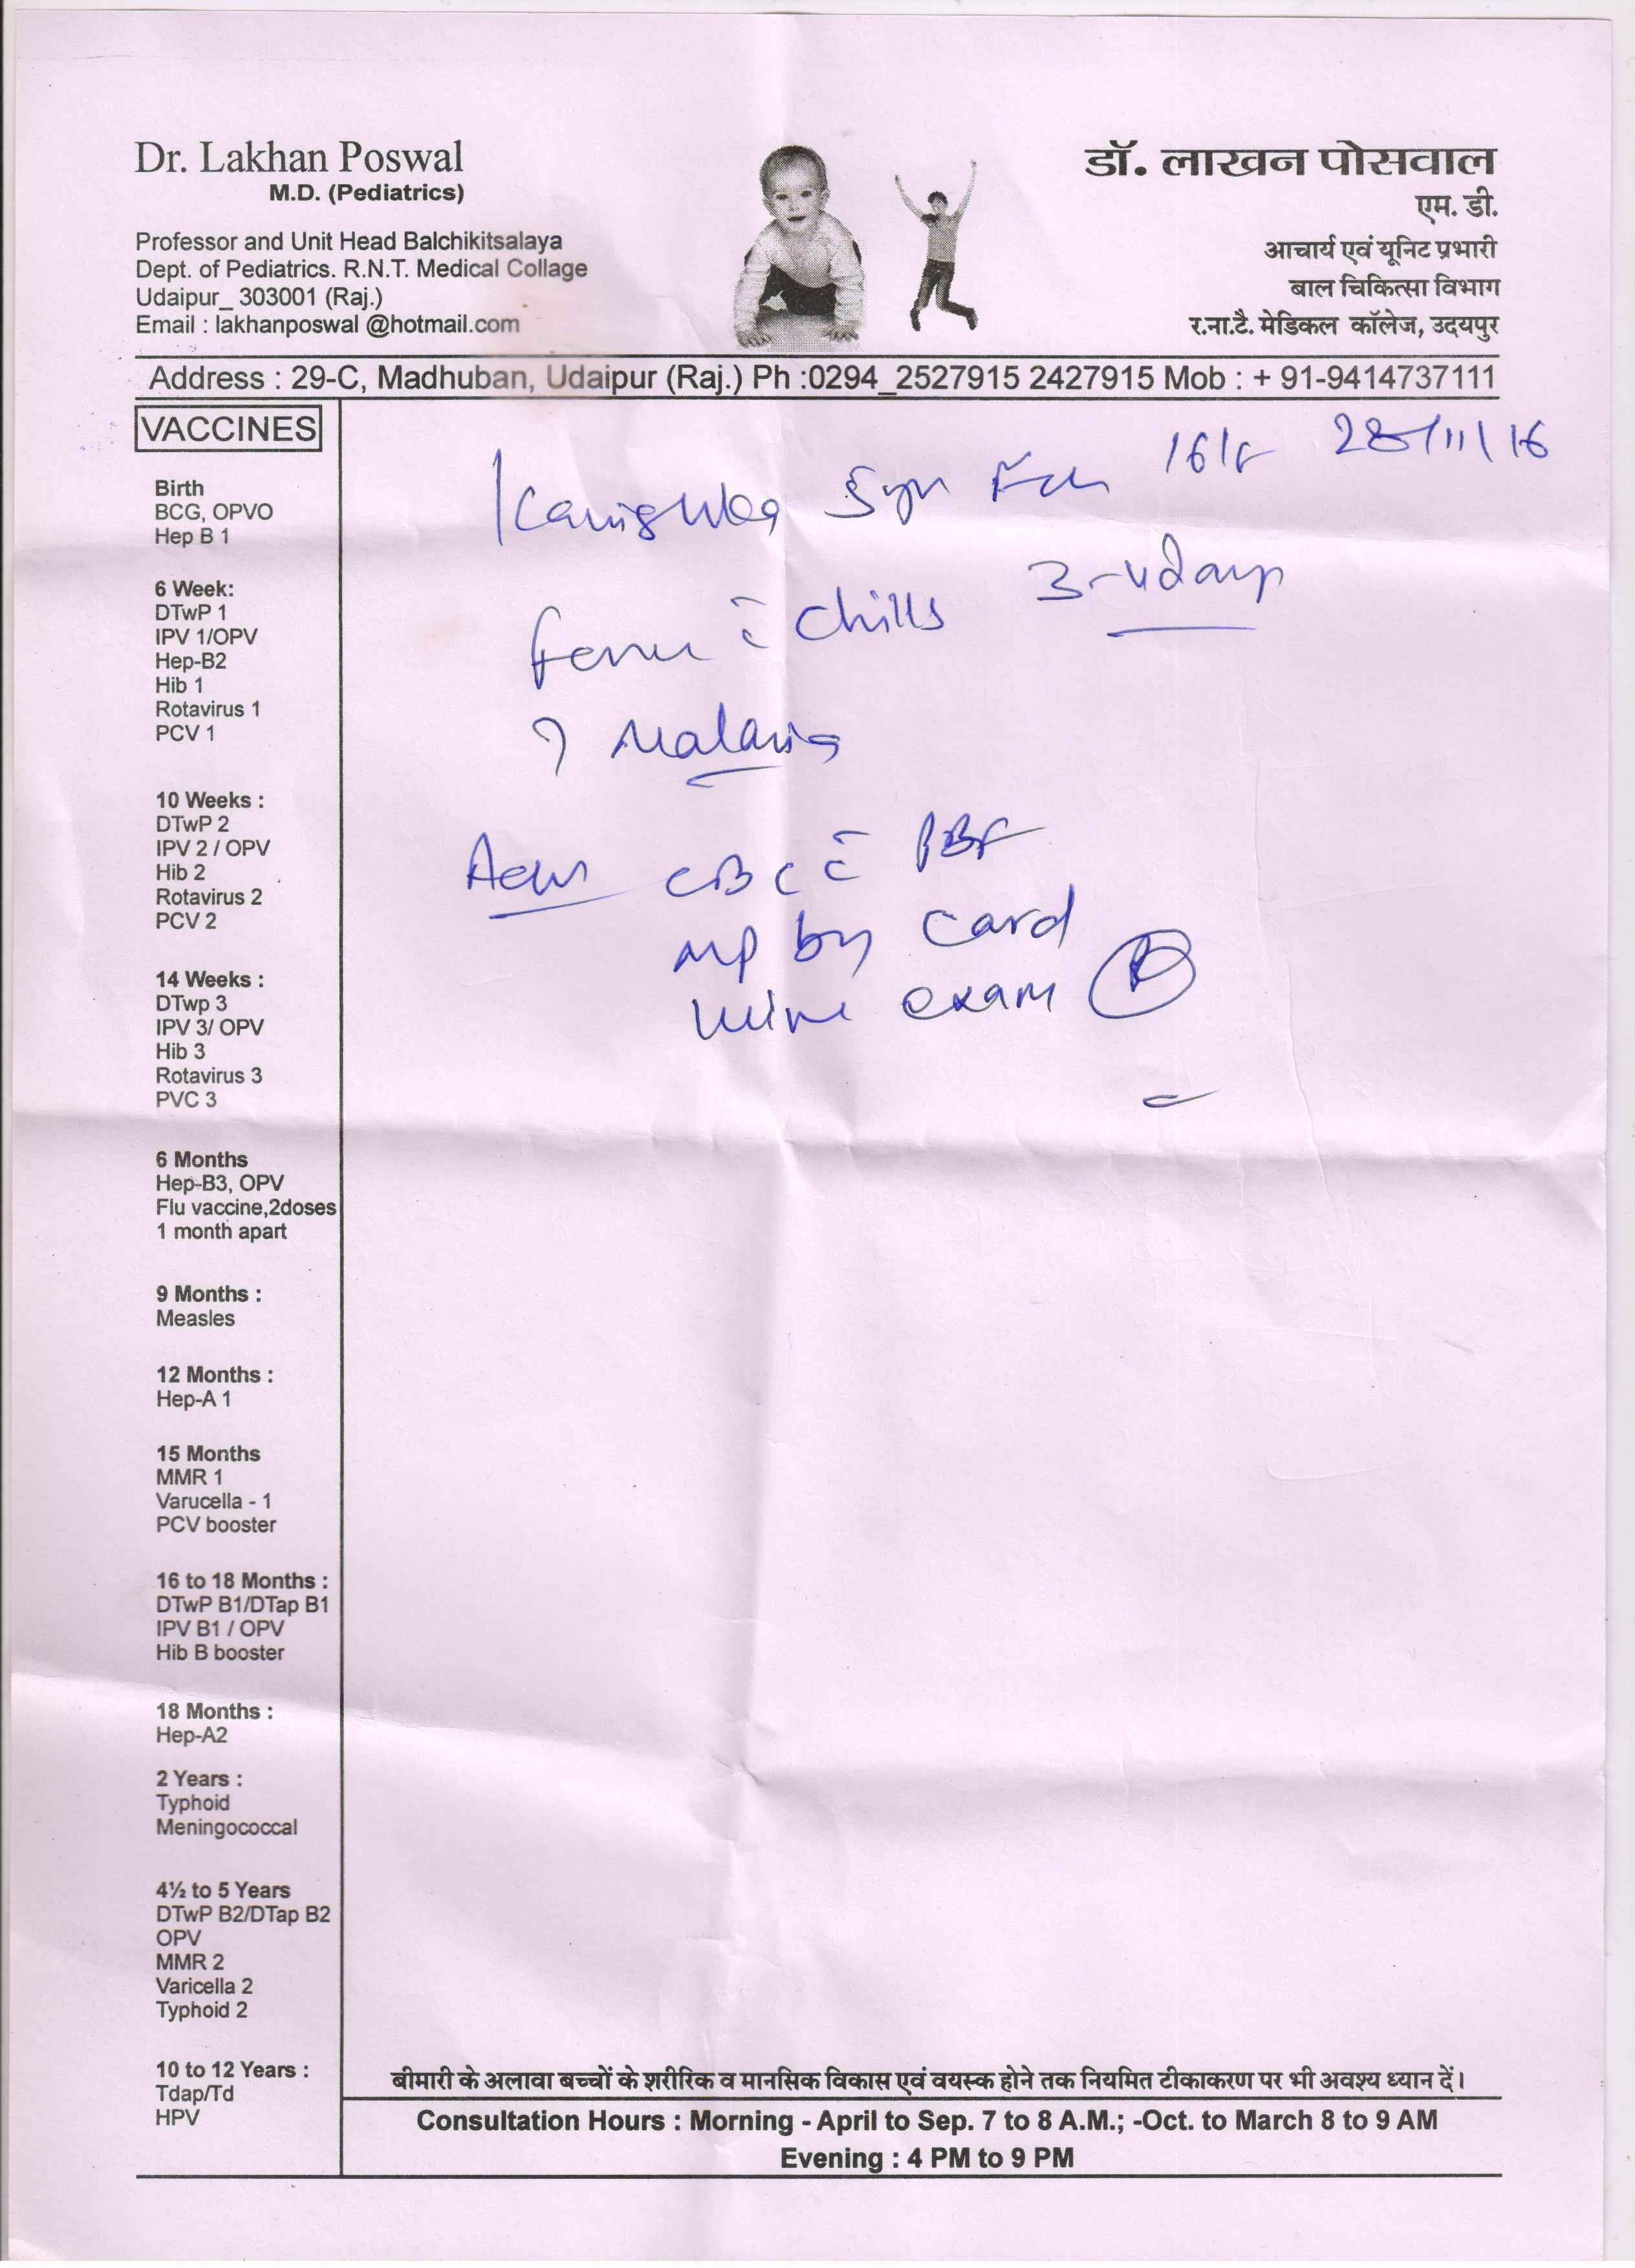 Dr. Lakhan Poswal
M.D. (Pediatrics)
Professor and Unit Head Balchikitsalaya
Dept. of Pediatrics. R.N.T. Medical Collage
Udaipur_ 303001 (Raj.)
Email : lakhanposwal @hotmail.com
डॉ. लाखन पोसवाल
एम. डी.
आचार्य एवं यूनिट प्रभारी
बाल चिकित्सा विभाग
र.ना.टै. मेडिकल कॉलेज, उदयपुर
Address : 29-C, Madhuban, Udaipur (Raj.) Ph :0294_2527915 2427915 Mob : + 91-9414737111
VACCINES
Birth
BCG, OPVO
Hep B 1
6 Week:
DTwP 1
IPV 1/OPV
Hep-B2
Hib 1
Rotavirus 1
PCV 1
10 Weeks :
DTwP 2
IPV 2 / OPV
Hib 2
Rotavirus 2
PCV 2
14 Weeks :
DTwp 3
IPV 3/ OPV
Hib 3
Rotavirus 3
PVC 3
6 Months
Hep-B3, OPV
Flu vaccine,2doses
1 month apart
9 Months :
Measles
12 Months :
Hep-A 1
15 Months
MMR 1
Varucella - 1
PCV booster
16 to 18 Months :
DTwP B1/DTap B1
IPV B1 / OPV
Hib B booster
18 Months :
Hep-A2
2 Years :
Typhoid
Meningococcal
4½ to 5 Years
DTwP B2/DTap B2
OPV
MMR 2
Varicella 2
Typhoid 2
10 to 12 Years :
Tdap/Td
HPV
Kanishka 28/11/16
fever c̄ chills 3-4 days
? Malaria
CBC c̄ PBF
MP by card
urine exam
बीमारी के अलावा बच्चों के शरीरिक व मानसिक विकास एवं वयस्क होने तक नियमित टीकाकरण पर भी अवश्य ध्यान दें।
Consultation Hours : Morning - April to Sep. 7 to 8 A.M.; -Oct. to March 8 to 9 AM
Evening : 4 PM to 9 PM